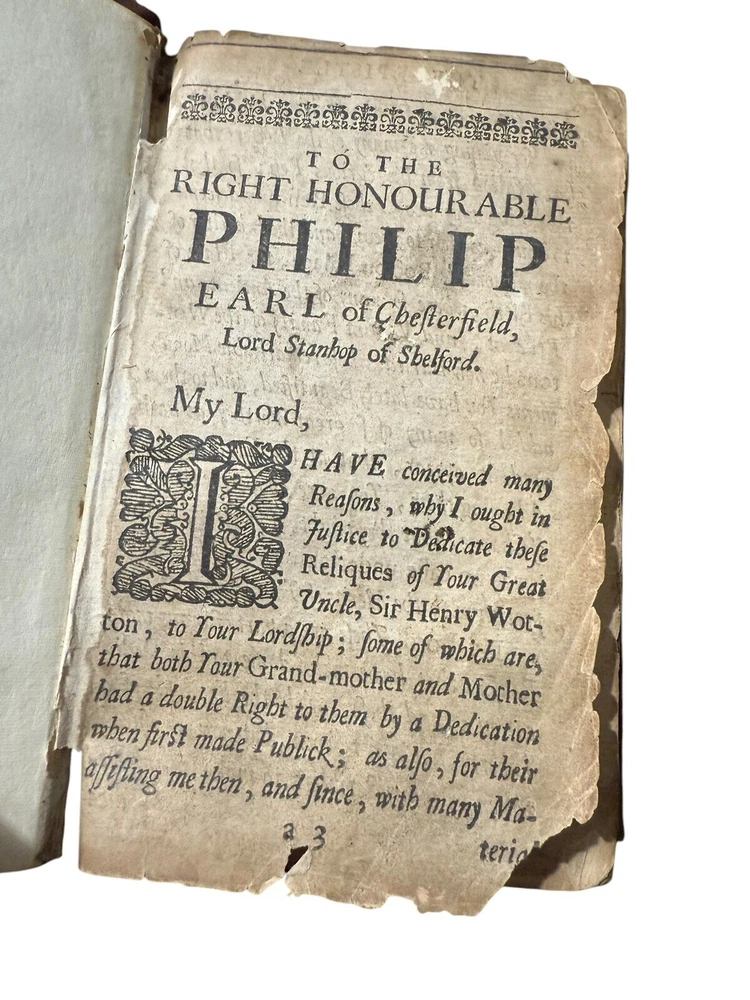 TO THE
RIGHT HONOURABLE
PHILIP
EARL of Cheſterfield,
Lord Stanhop of Shelford.
My Lord,
I HAVE conceived many
Reaſons, why I ought in
Juſtice to Dedicate theſe
Reliques of Your Great
Uncle, Sir Henry Wot-
ton, to Your Lordſhip; ſome of which are,
that both Your Grand-mother and Mother
had a double Right to them by a Dedication
when firſt made Publick; as alſo, for their
aſſiſting me then, and ſince, with many Ma-
a 3